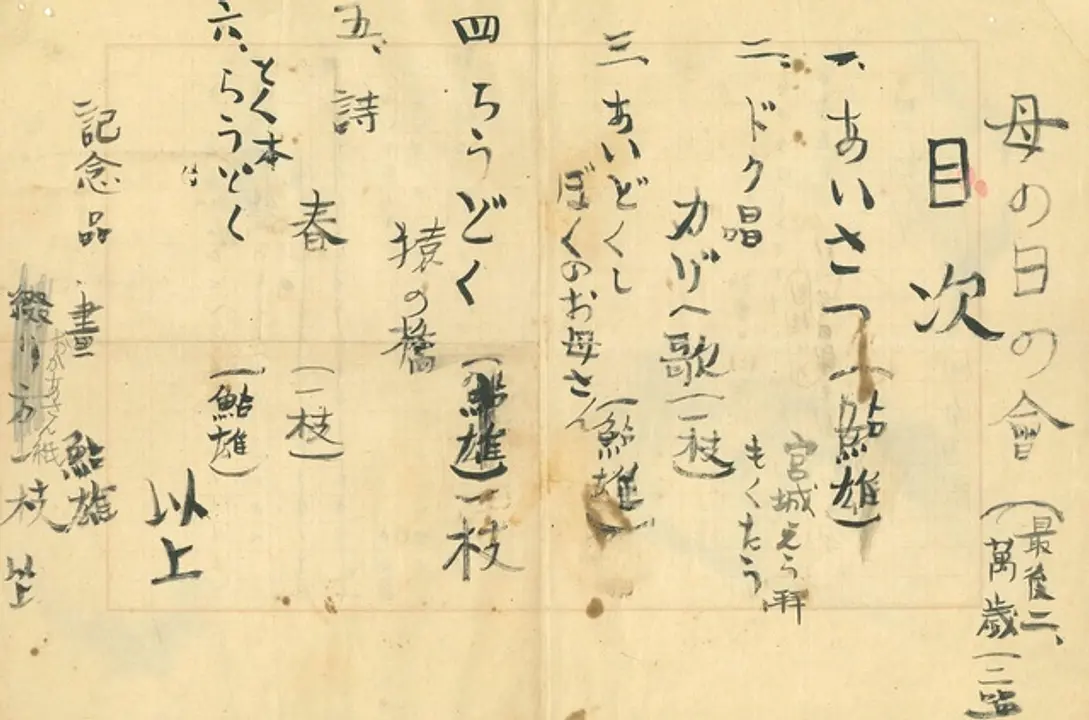 母の日の會
(最後二、
萬歳(二唱
目次
一、あいさつ(鮎雄)
宮城えう拝
もくたう
二、ドク唱
カゾヘ歌(一枝)
三、あいどくし
ぼくのお母さん(鮎雄)
四 らうどく(鮎雄)一枝
猿の橋
五、詩
春(一枝)
六、とく本
らうどく(鮎雄)
以上
記念品 畫 鮎雄
おかあさん紙
綴り方 一枝